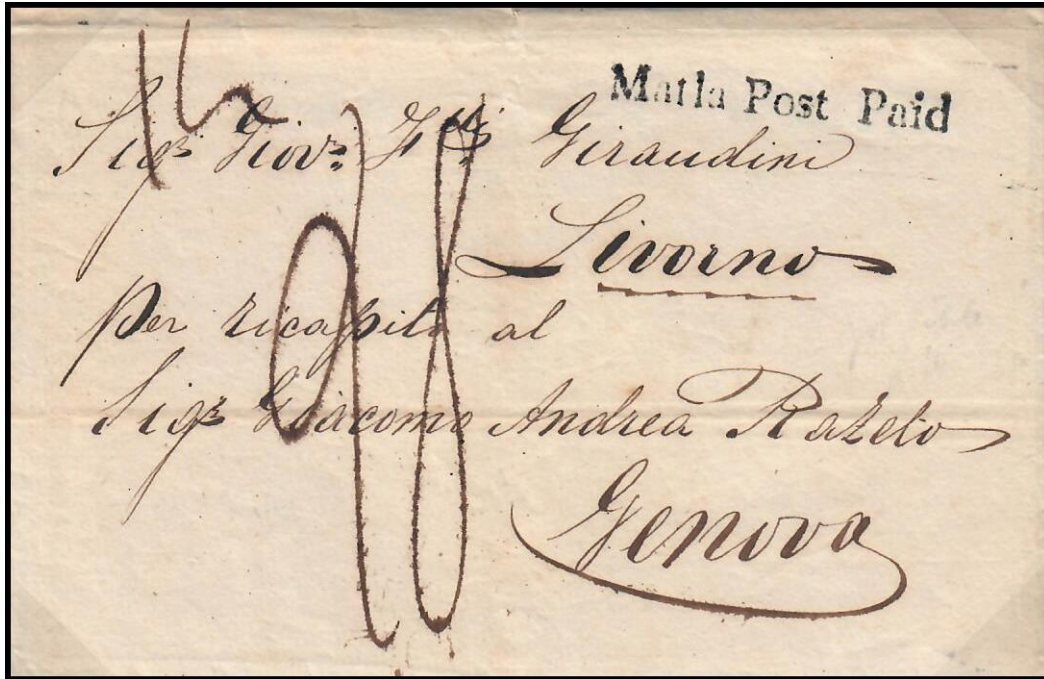 Matla Post Paid
Sigr Giovi Giraudini
Livorno
Per ricapito al
Sigr Giacomo Andrea Razeto
Genova